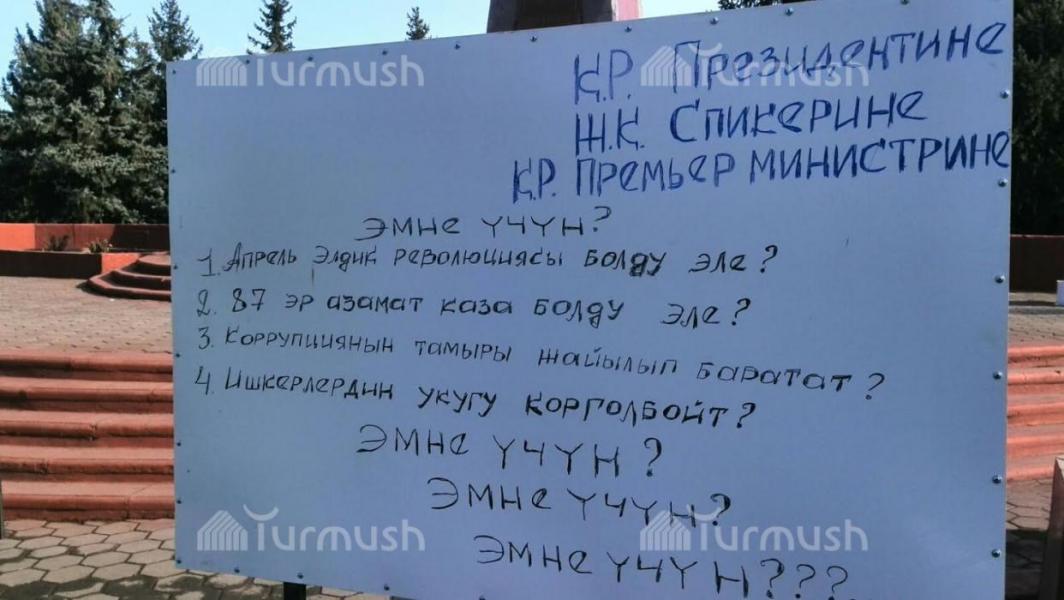 Turmush
Turmush
К.Р. Президентине
Ж.К. Спикерине
К.Р. Премьер министрине
Эмне үчүн?
1. Апрель Элдик революциясы болду эле?
2. 87 эр азамат каза болду эле?
3. Коррупциянын тамыры жайылып баратат?
4. Ишкерлердин укугу корголбойт?
Эмне үчүн?
Эмне үчүн?
Turmush
Turmush
Эмне үчүн???